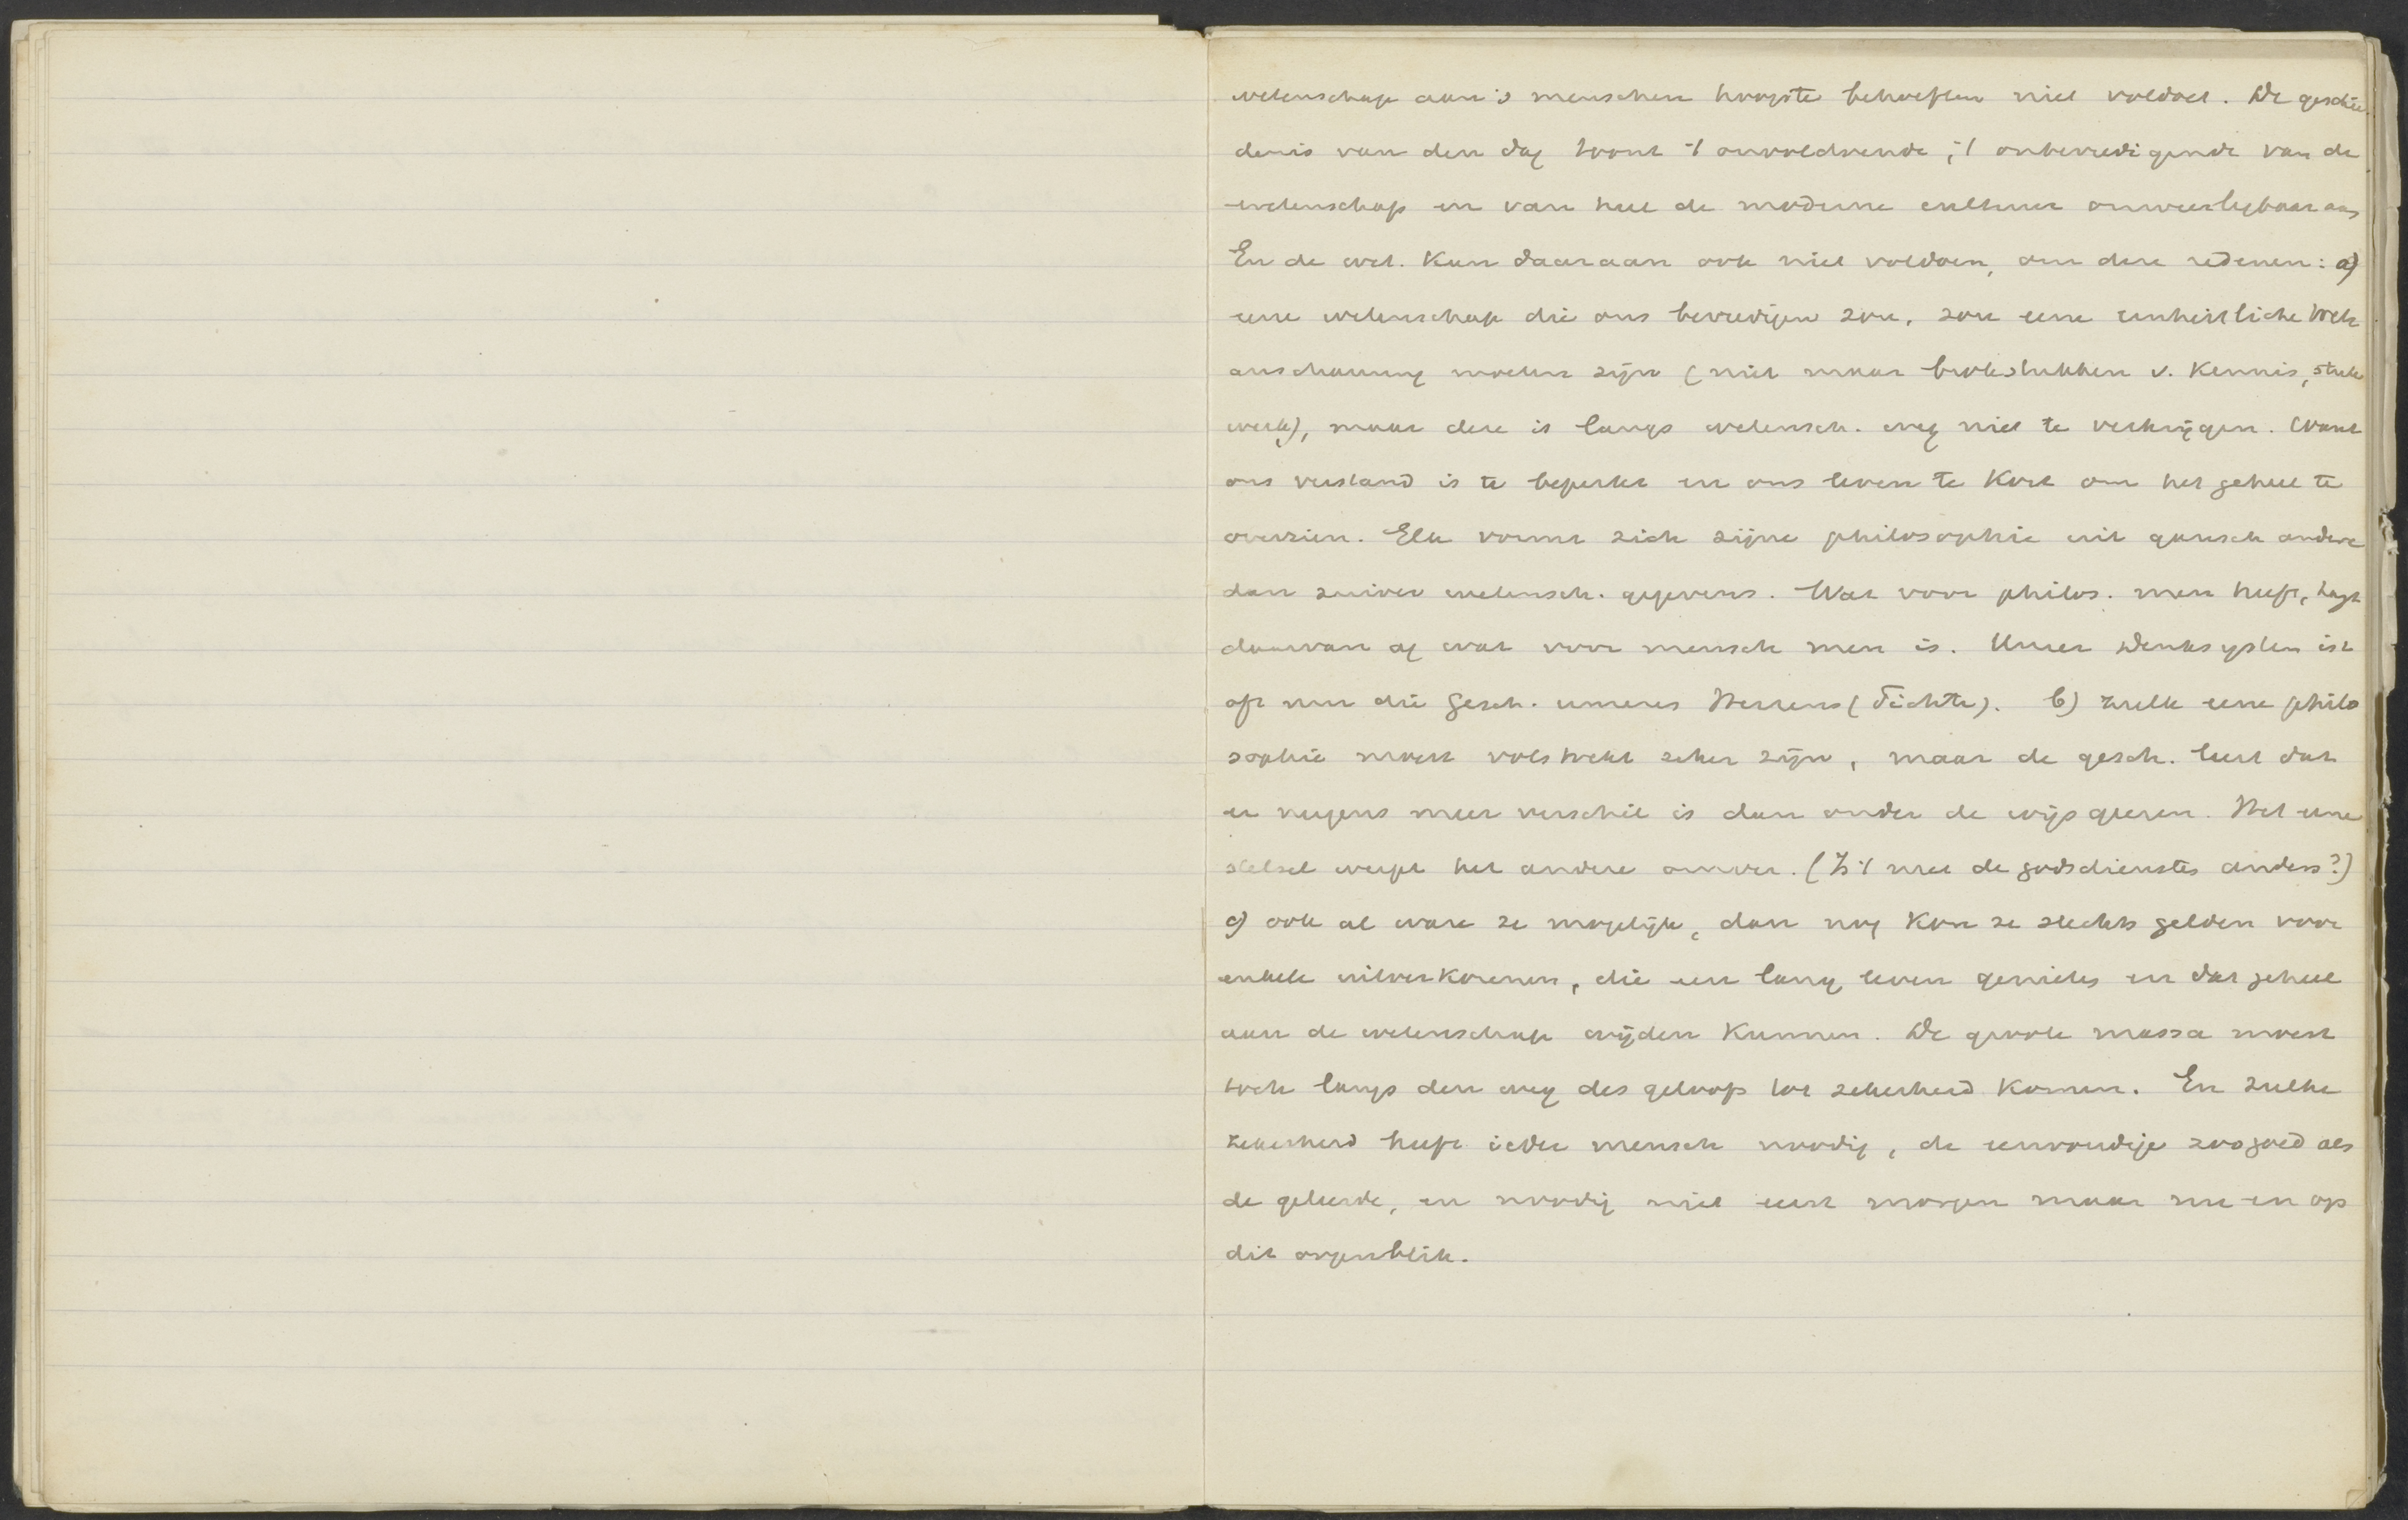 wetenschap aan 's menschen hoogste behoeften niet voldoet. De geschie
denis van den dag toont 't onvoldoende, 't onbevredigende van de
wetenschap en van heel de moderne cultuur onweerlegbaar aan
En de wet. kan daaraan ook niet voldoen, om deze redenen: a)
eene wetenschap die ons bevredigen zou, zou eene einheitliche Welt
anschauung moeten zijn (niet maar brokstukken v. kennis, stuk
werk), maar deze is langs wetensch. weg niet te verkrijgen. Want
ons verstand is te beperkt en ons leven te kort om het geheel te
overzien. Elk vormt zich zijne philosophie uit gansch andere
dan zuiver wetensch. gegevens. Wat voor philos. men heeft, hangt
daarvan af wat voor mensch men is. Unser Denksystem ist
oft nur die Gesch. unseres Herzens (Fichte). b) zulk eene philo
sophie moest volstrekt zeker zijn, maar de gesch. leert dat
er nergens meer verschil is dan onder de wijsgeeren. Het eene
stelsel werpt het andere omver. (Is 't met de godsdiensten anders?)
c) ook al ware ze mogelijk, dan nog kon ze slechts gelden voor
enkele uitverkorenen, die een lang leven genieten en dat geheel
aan de wetenschap wijden kunnen. De groote massa moest
toch langs den weg des geloofs tot zekerheid komen. En zulke
zekerheid heeft ieder mensch noodig, de eenvoudige zoogoed als
de geleerde, en noodig niet eerst morgen maar nu en op
dit oogenblik.